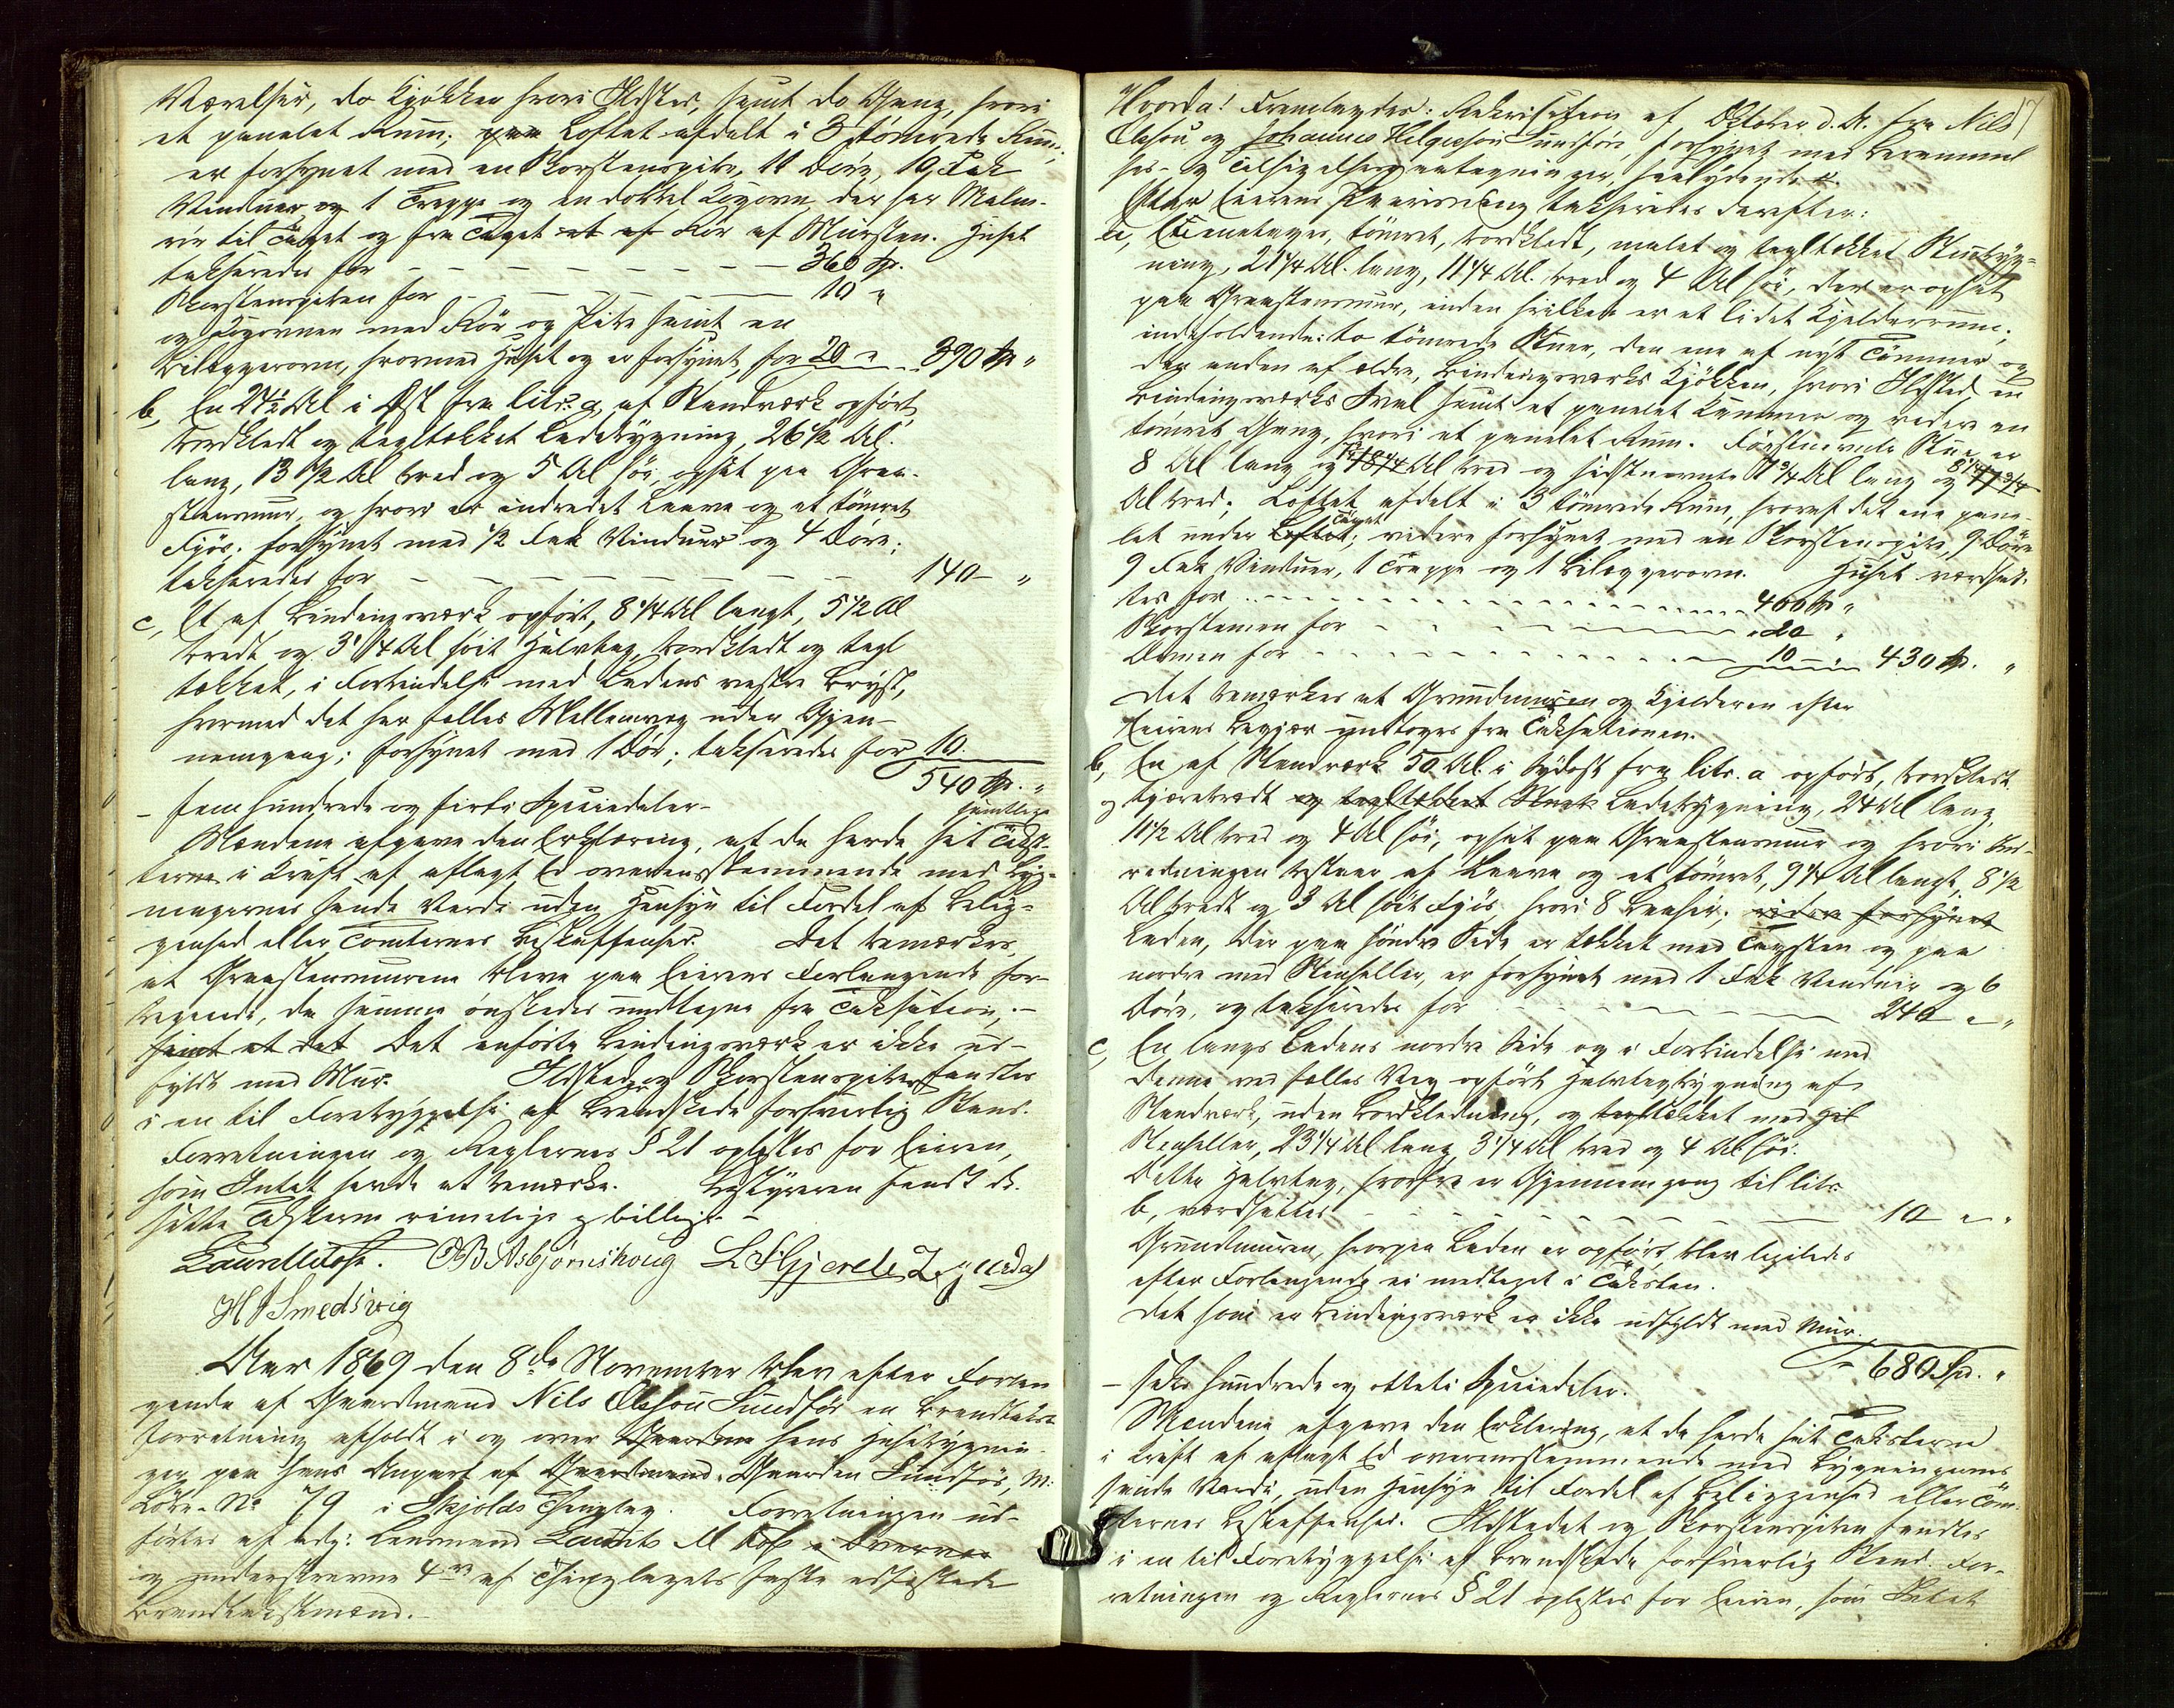 Værelser, do Kjøkken hvori Ildsted, samt do Gang, hvori
et panelet Rum; paa Loftet afdelt i 3 tömrede Rum;
er forsynet med en Skorstenspibe, 11 Döre, 10 Fak
Vinduer og 1 Trappe og en dobbel Kogovn, der har Malm-
rör til Taget og fra Taget et af Rör af Mursten. Huset
takseredes for – – – – – – – 360 Sp.
Skorstenspiben for – – – – – 10 "
og Kogovnen med Rör og Pibe samt en
Bilæggerovn, hvormed Huset og er forsynet, for 20 " – 390 Sp "
b, En 27½ Al i Öst fra litr. a, af Standværk opført,
bordklædt og tagltækket Ladebygning, 26½ Al.
lang, 13½ Al bred og 5 Al høi, opsat paa Graa-
stensmur, og hvori er indredet Laave og et tömret
Fjös; forsynet med ½ Fak Vinduer og 4 Döre;
takseredes for – – – – – – – – 140 – "
c, Et af Bindingsværk opført, 8¼ Al langt, 5½ Al
bredt og 3¼ Al höit Halvtag, bordklædt og tagl
tækket, i Forbindelse med Ladens vestre Bryst,
hvormed det har fælles Mellemvæg uden Gjen-
nemgang; forsynet med 1 Dör; takseredes for 10
540 Sp. "
– fem hundrede og firti Speciedaler –
samtlige
Mændene afgave den Erklæring, at de havde sat Takst-
terne i Kraft af aflagt Ed overensstemmende med Byg-
ningernes sande Værdi uden Hensyn til Fordel af Belig-
genhed eller Tomternes Beskaffenhed. Det bemærkes,
at Graastensmurene bleve paa Eierens Forlangende for-
bigaaede, da samme ønskedes undtagne fra Taksation, –
samt at det Det anførte Bindingsværk er ikke ud-
fyldt med Mur. Ildsted og Skorstenspiber fandtes
i en til Forebyggelse af Brandskade forsvarlig Stand.
Forretningen og Reglernes § 21 oplæstes for Eieren,
som Intet havde at bemærke. Bestyreren fandt de
satte Takster rimelige og billige. –
OB Asbjørnshoug L S Gjerde
H J Smedsvig
Aar 1869 den 8de November blev efter Forlan
gende af Gaardmand Nils Olesön Sundför en Brandtakst
forretning afholdt i og over Gaardens hans Husebygnin-
ger paa hans Anpart af Gaardmand. Gaarden Sundför, M:
Löbe-No 79 i Skjolds Thinglag. Forretningen ud-
førtes af adj: Lensmand Laurits M Kofs i Overvær
og understrevne 4re af Thinglagets faste edfæstede
Brandtakstmænd. –
17
Hvorda! Fremlagdes: Rekvisition af October d. A. fra Nils
Olesön og Johannes Helgesön Sundför, forsynet med Berammel
ses- og Tilsigelsespaategninger, saalydende #.
Efter Eierens Paavisning takseredes derefter:
a, Een etages, tömret, bordklædt, malet og tagltækket Stuebyg-
ning, 21¼ Al. lang, 11¼ Al. bred og 4 Al høi, der er opsat
paa Graastensmur, inden hvilken er et lidet Kjelderrum;
indeholdende: to tömrede Stuer, den ene af nyt Tömmer og
den anden af ældre, Bindingsværks Kjökken, hvori Ildsted, en
Bindingsværks Sval samt et panelet Kammer og videre en
tömret Gang, hvori et panelet Rum. Förstnævnte Stue er
8 Al lang og 8¼ Al bred og sidstnævnte 7¾ Al lang og 8¼
Al bred; Loftet afdelt i 3 tömrede Rum, hvoraf det ene pane-
let under Loftet Taget; videre forsynet med en Skorstenspibe, 9 Döre
9 Fak Vinduer, 1 Trappe og 1 Bilæggerovn. Huset værdsat-
tes for – – – – – – – – – – 400 Sp "
Skorstenen for – – – – – – – 20 "
Ovnen for – – – – – – – – – 10 – " 430 Sp. "
Det bemærkes at Grundmuren og Kjelderen efter
Eierens Begjær undtoges fra Taksationen.
b, En af Standværk 50 Al. i Sydost fra litr. a opført, bordklædt
og tjærebredt og tagltækket Stue Ladebygning, 24 Al lang,
11½ Al bred og 4 Al høi, opsat paa Graastensmur og hvori Ind-
redningen bestaar af Laave og et tömret, 9¼ Al langt, 8½
Al bredt og 3 Al höit Fjös, hvori 8 Baaser; videre forsynet
Laden, der paa söndre Side er tækket med Tagsten og paa
nordre med Stenheller, er forsynet med 1 Fak Vinduer og 6
Döre, og takseredes for – – – – – – 240 – "
c, En langs Ladens nordre Side og i Forbindelse med
denne ved fælles Væg opført Halvtagbygning af
Standværk, uden Bordklædning, og tagltækket med Hel
Stenheller, 23¼ Al lang, 3¼ Al bred og 4 Al høi.
Dette Halvtag, hvorfra er Gjennemgang til litr.
b, værdsættes – – – – – – – – – 10 – "
Grundmuren, hvorpaa Laden er opført, blev ligeledes
efter Forlangende ei medtaget i Taksten.
Det som er Bindingsværk er ikke udfyldt med Mur.
680 Spd. "
– seks hundrede og otteti Speciedaler.
Mændene afgave den Erklæring, at de havde sat Taksterne
i Kraft af aflagt Ed overensstemmende med Bygningernes
sande Værdi, uden Hensyn til Fordel af Beliggenhed eller Tom-
ternes Beskaffenhed. Ildstedet og Skorstenspiben fandtes
i en til Forebyggelse af Brandskade forsvarlig Stand. For-
retningen og Reglernes § 21 oplæstes for Eieren, som Intet